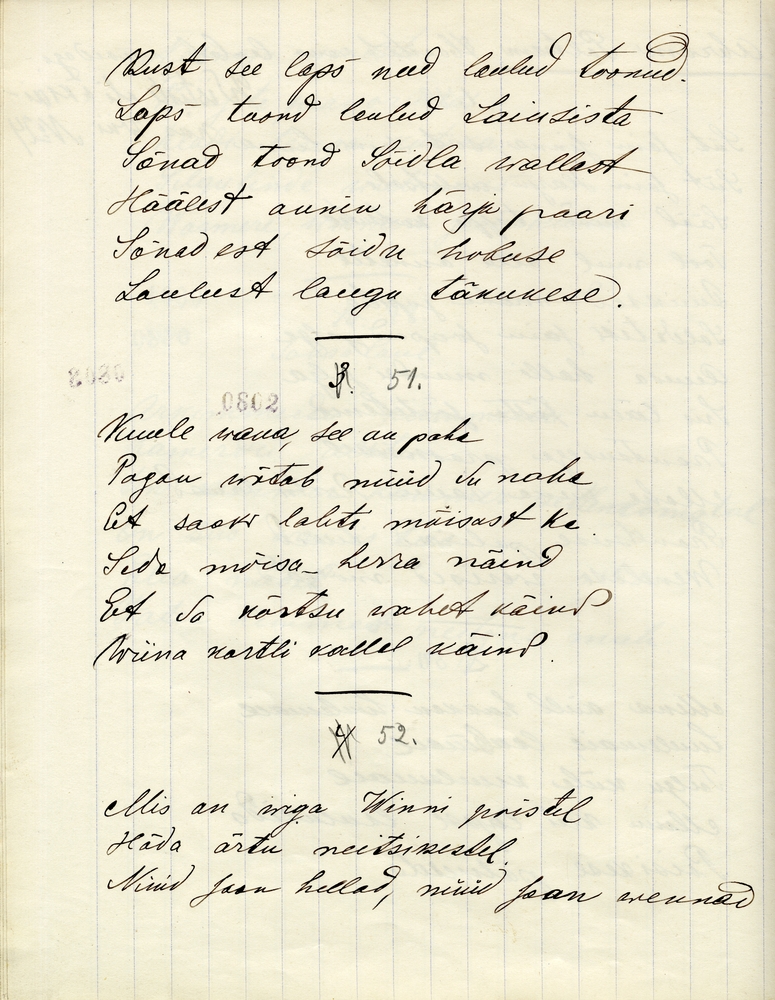 Kust see laps need laulud toonud.
Laps toond laulud Laiusista
Sõnad toond Sõidla wallast
Häälest annin härja paari
Sõnadest sõidu hobuse
Laulust laugu täkukese.
51.
0802
Kuule wana, see on paha
Pagan wõtab nüüd su naha
Et saaks lahti mõisast ka.
Seda mõisa-herra näind
Et sa kõrtsu wahet käind
Wiina kortli kallal käind.
52.
Mis on wiga Winni poistel
Häda ärtu neitsikestel.
Nüüd saan hellad, nüüd saan wennad